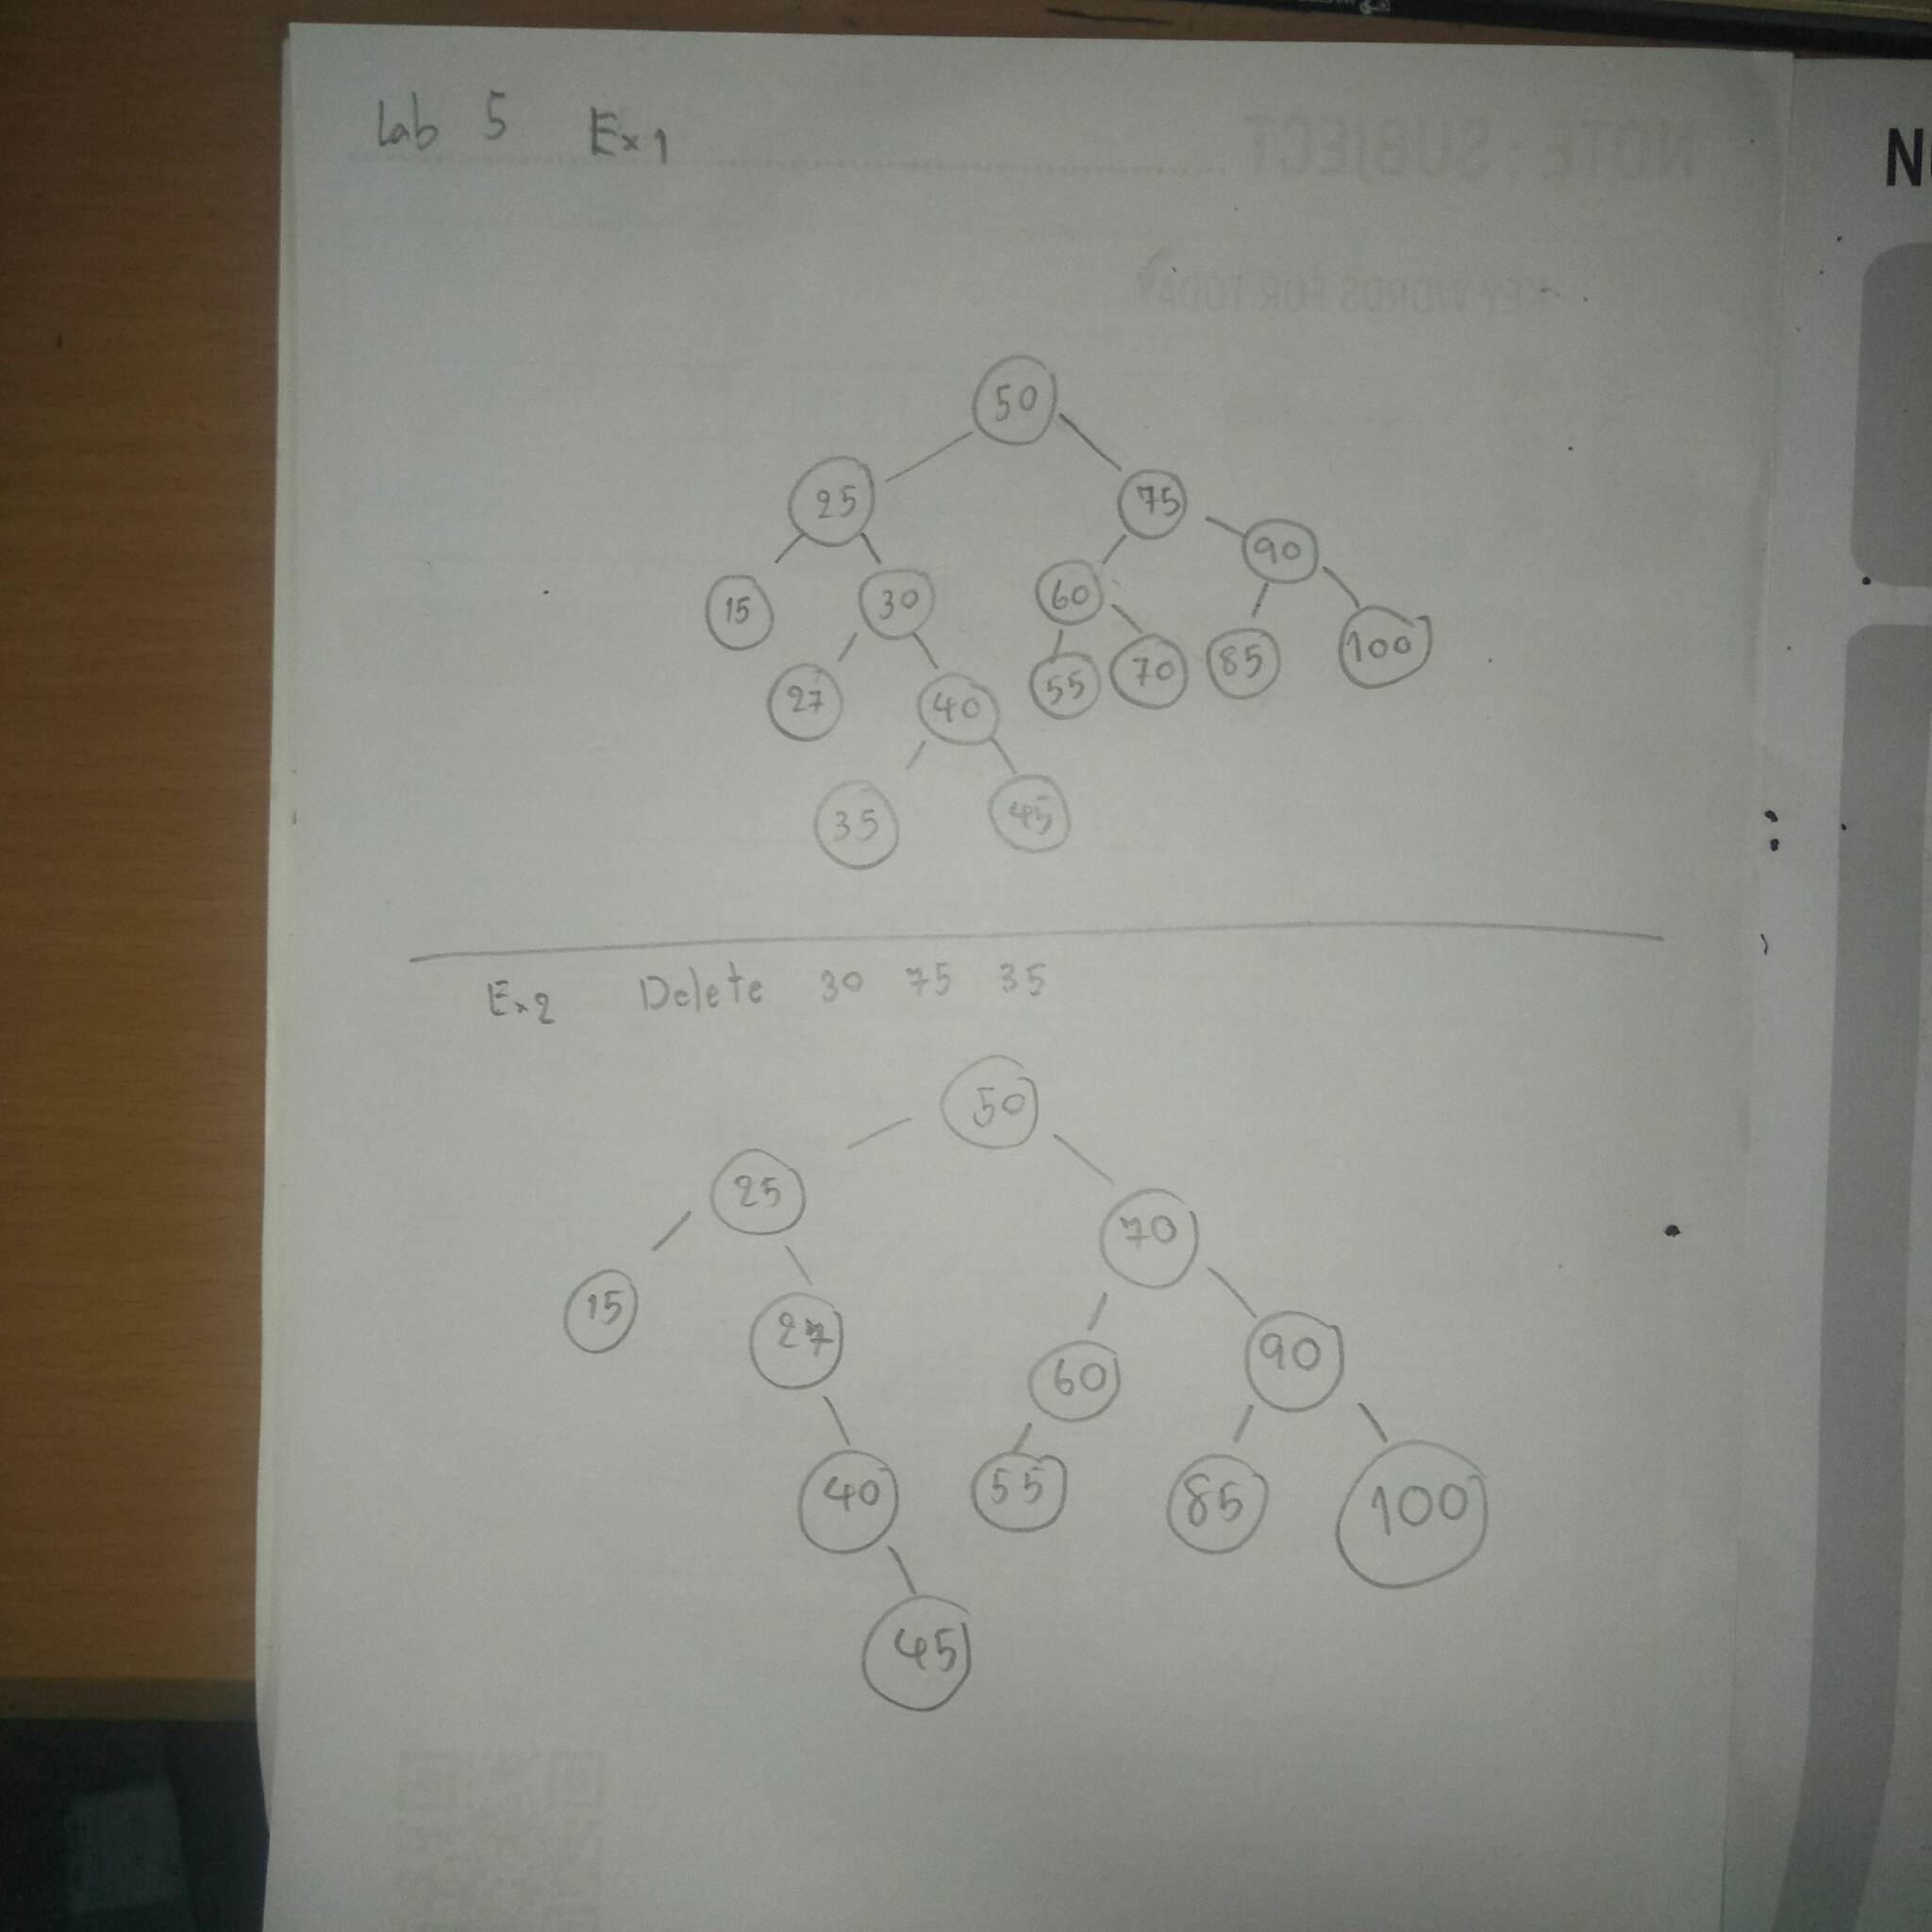 Lab 5 Ex1
NOTE : SUBJECT
KEY WORDS FOR TODAY
50
25 75
90
15 30 60
27 40 55 70 85 100
35 45
Ex2 Delete 30 75 35
50
25 70
15 27 60 90
40 55 85 100
45